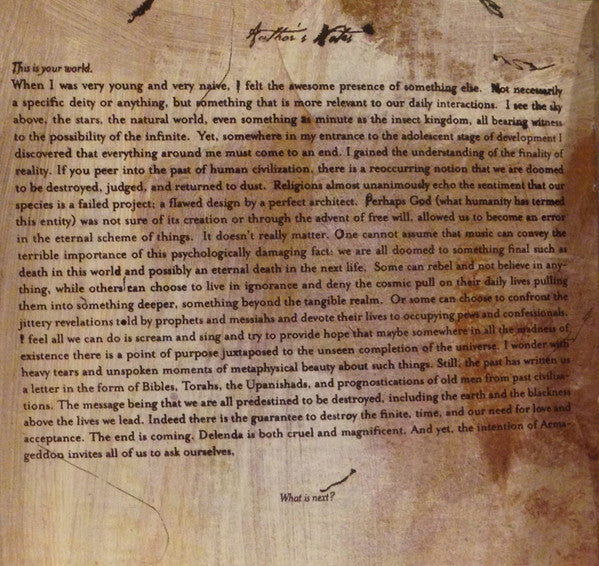 Author's Notes
This is your world.
When I was very young and very naive, I felt the awesome presence of something else. Not necessarily
a specific deity or anything, but something that is more relevant to our daily interactions. I see the sky
above, the stars, the natural world, even something as minute as the insect kingdom, all bearing witness
to the possibility of the infinite. Yet, somewhere in my entrance to the adolescent stage of development I
discovered that everything around me must come to an end. I gained the understanding of the finality of
reality. If you peer into the past of human civilization, there is a reoccurring notion that we are doomed
to be destroyed, judged, and returned to dust. Religions almost unanimously echo the sentiment that our
species is a failed project; a flawed design by a perfect architect. Perhaps God (what humanity has termed
this entity) was not sure of its creation or through the advent of free will, allowed us to become an error
in the eternal scheme of things. It doesn't really matter. One cannot assume that music can convey the
terrible importance of this psychologically damaging fact: we are all doomed to something final such as
death in this world and possibly an eternal death in the next life. Some can rebel and not believe in any-
thing, while others can choose to live in ignorance and deny the cosmic pull on their daily lives pulling
them into something deeper, something beyond the tangible realm. Or some can choose to confront the
jittery revelations told by prophets and messiahs and devote their lives to occupying pews and confessionals.
I feel all we can do is scream and sing and try to provide hope that maybe somewhere in all the madness of
existence there is a point of purpose juxtaposed to the unseen completion of the universe. I wonder with
heavy tears and unspoken moments of metaphysical beauty about such things. Still, the past has written us
a letter in the form of Bibles, Torahs, the Upanishads, and prognostications of old men from past civiliza-
tions. The message being that we are all predestined to be destroyed, including the earth and the blackness
above the lives we lead. Indeed there is the guarantee to destroy the finite, time, and our need for love and
acceptance. The end is coming. Delenda is both cruel and magnificent. And yet, the intention of Arma-
geddon invites all of us to ask ourselves,
What is next?